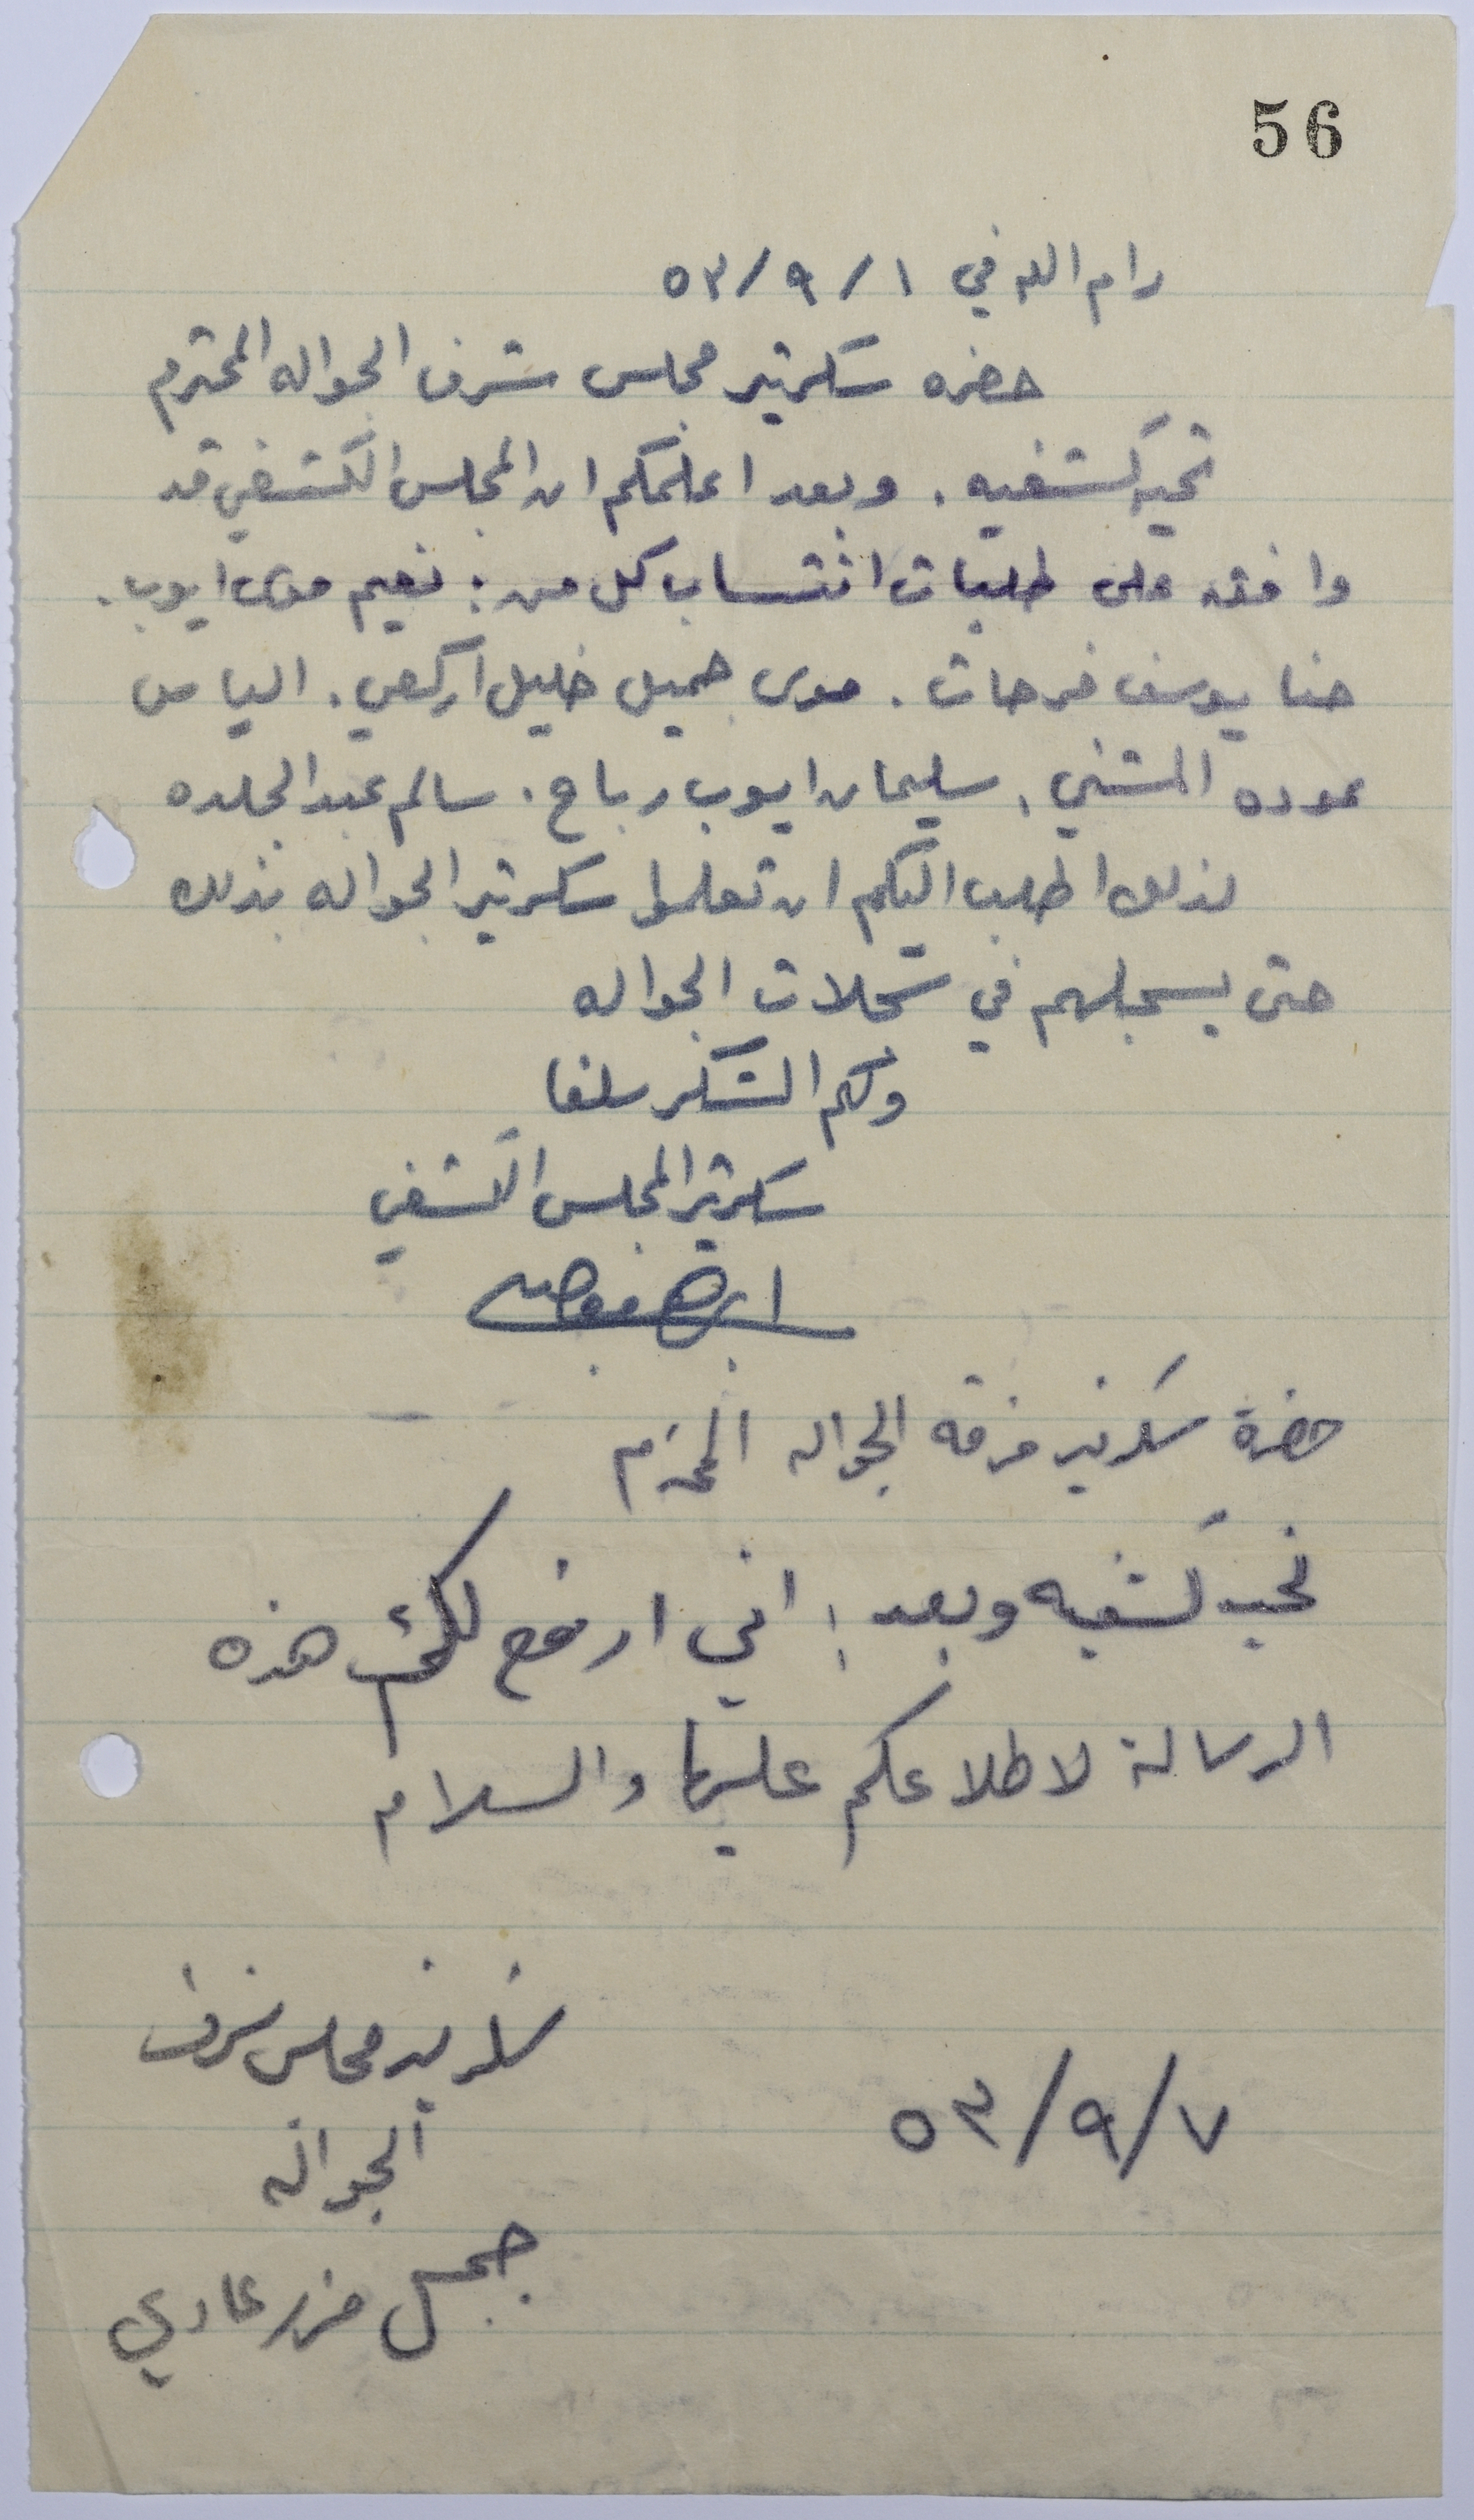 56
رام الله في ١/٩/٥٣
حضره سكرتير مجلس شرف الجواله المحترم
تحيه كشفيه. وبعد اعلمكم ان المجلس الكشفي قد
وافق على طلبات انتساب كل من: نعيم موسى ايوب.
حنا يوسف فرحات. موسى جميل خليل اركعي. الياس
عوده المشني. سليمان ايوب رباح. سالم عبد الجلده
لذلك اطلب اليكم ان تعلموا سكرتير الجواله بذلك
حتى يسجلهم في سجلات الجواله
ولكم الشكر سلفا
سكرتير المجلس الكشفي
حضرة سكرتير فرقه الجواله المحترم
تحيه كشفيه وبعد؛ اني ارفع لكم هذه
الرسالة لاطلاعكم عليها والسلام
سكرتير مجلس شرف
الجواله
٧/٩/٥٣
جميل